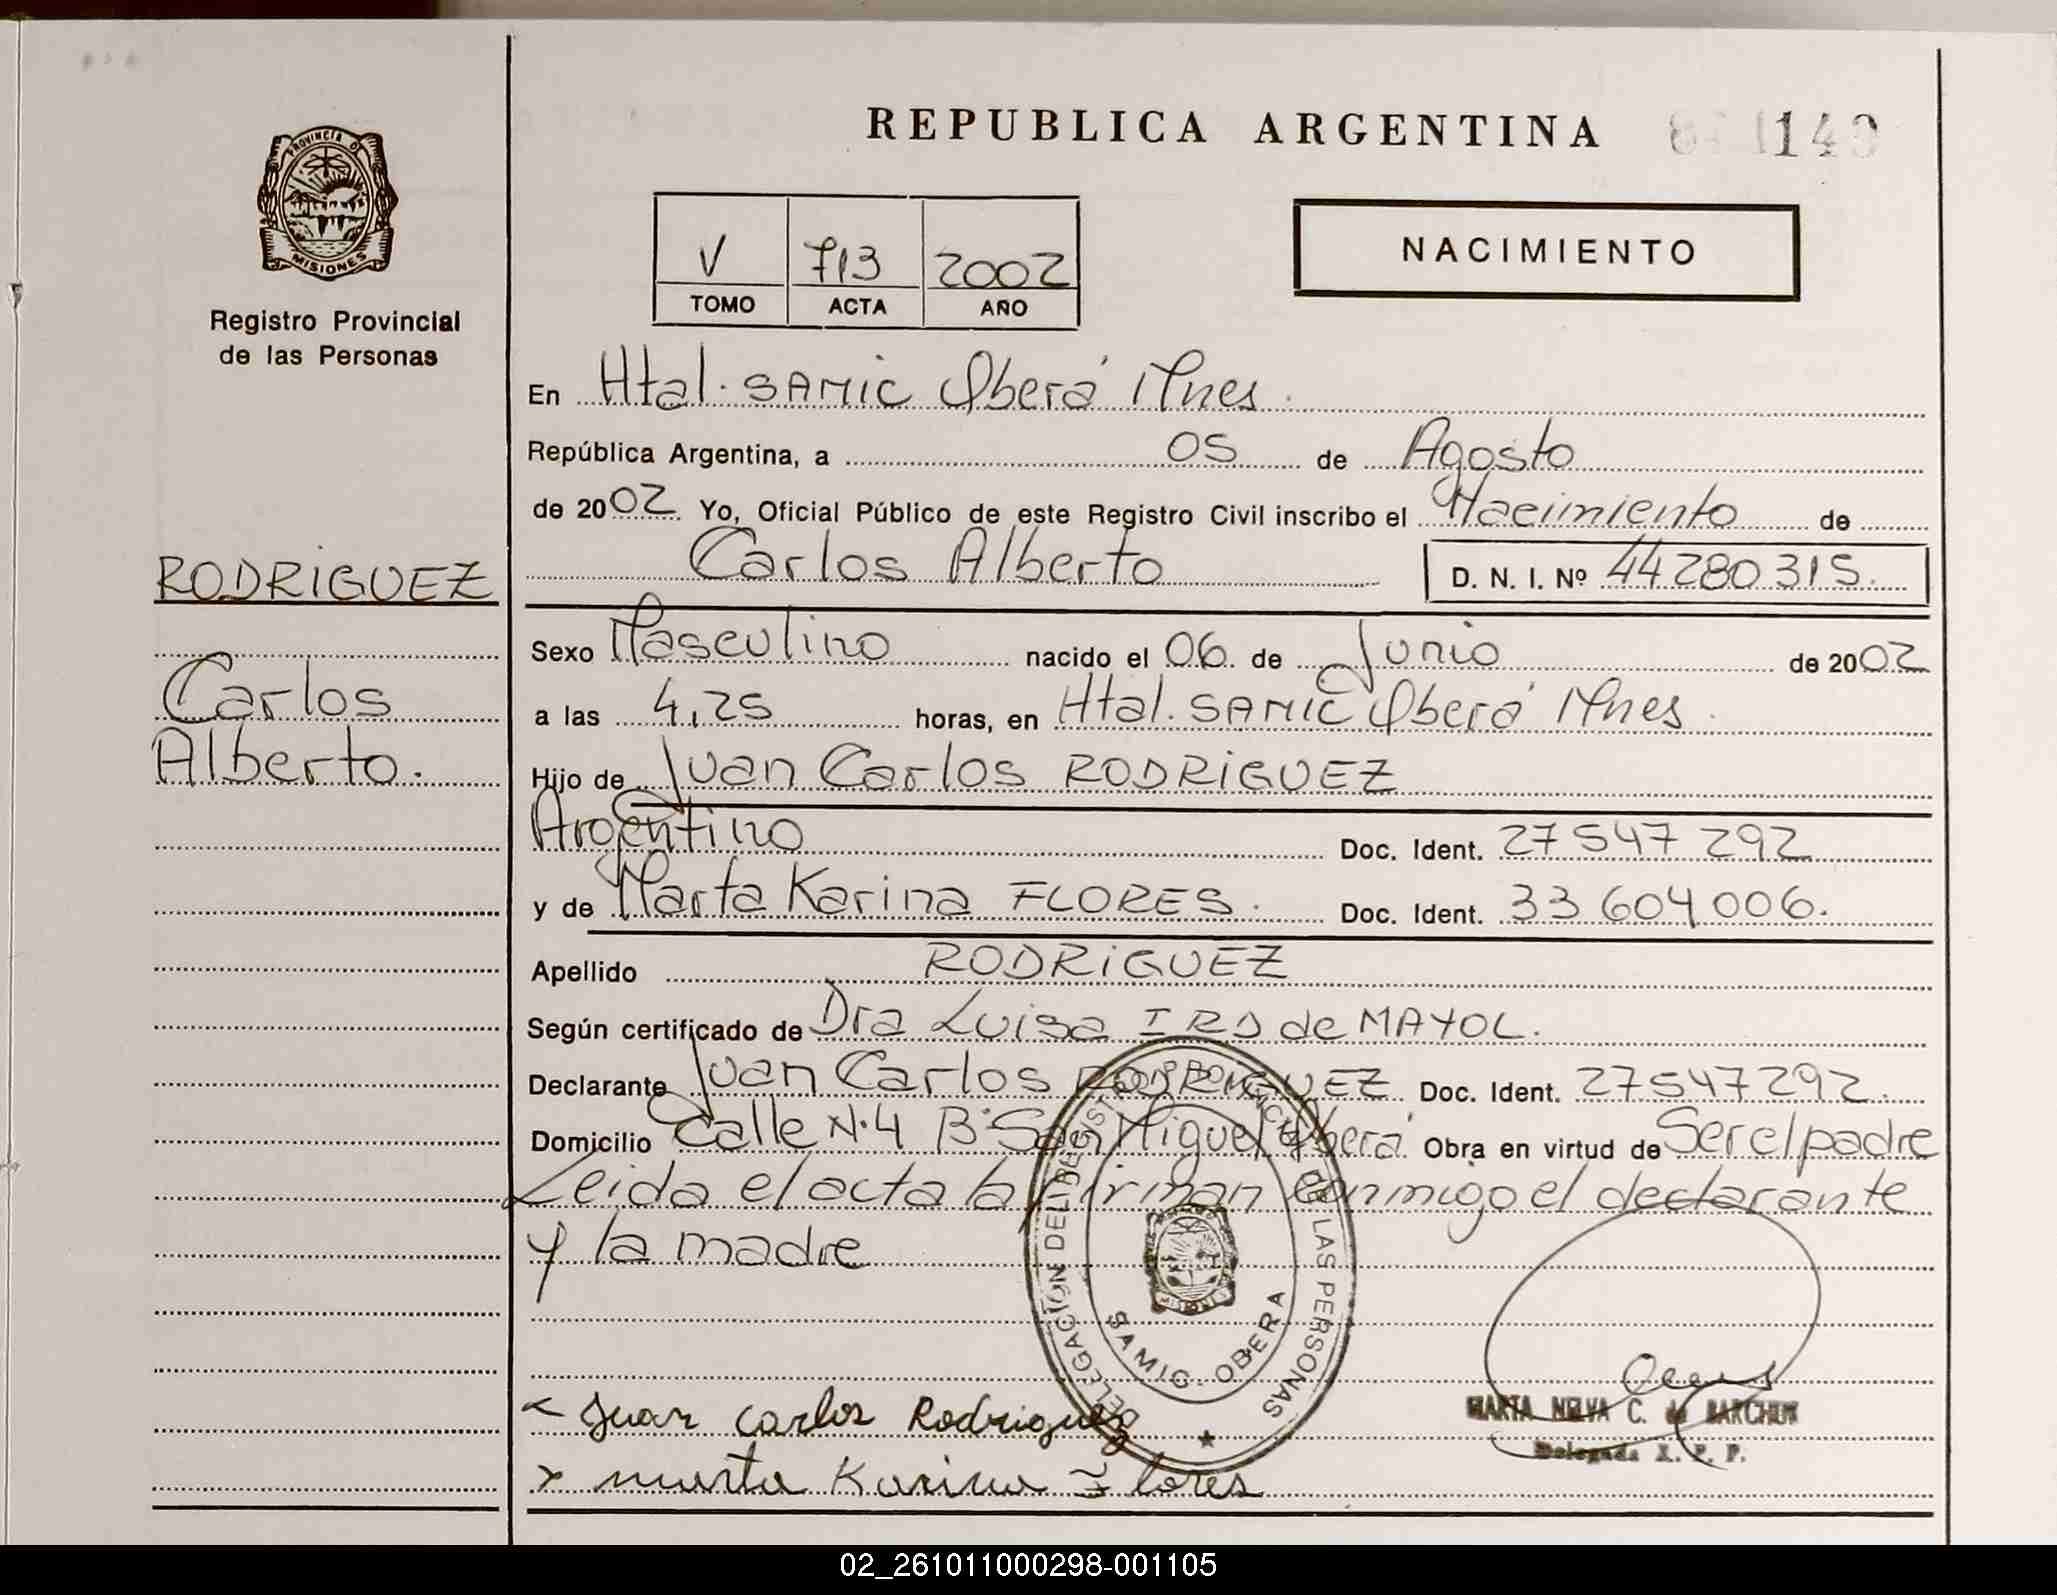 REPUBLICA ARGENTINA
149
PROVINCIA D
MISIONES
Registro Provincial
de las Personas
V 713 2002
TOMO ACTA AÑO
NACIMIENTO
En Htal. SAMIC Oberá Mnes.
República Argentina, a 05 de Agosto
de 2002 Yo, Oficial Público de este Registro Civil inscribo el Nacimiento de
Carlos Alberto D. N. I. Nº 44280315.
RODRIGUEZ
Carlos
Alberto.
Sexo Masculino nacido el 06 de Junio de 2002
a las 4,25 horas, en Htal. SAMIC Oberá Mnes.
Hijo de Juan Carlos RODRIGUEZ
Argentino Doc. Ident. 27547292
y de Marta Karina FLORES. Doc. Ident. 33604006.
Apellido RODRIGUEZ
Según certificado de Dra Luisa IRD de MAYOL.
Declarante Juan Carlos RODRIGUEZ Doc. Ident. 27547292.
Domicilio Calle Nº4 Bº San Miguel Oberá Obra en virtud de Ser el padre
Leida el acta la firman conmigo el declarante
y la madre
DELEGACION DEL REGISTRO PROVINCIAL DE LAS PERSONAS
MISIONES
SAMIC - OBERA
Juan Carlos Rodriguez
marta Karina Flores
MARTA NELVA C. de BARCHUK
Delegada R. P. P.
02_261011000298-001105